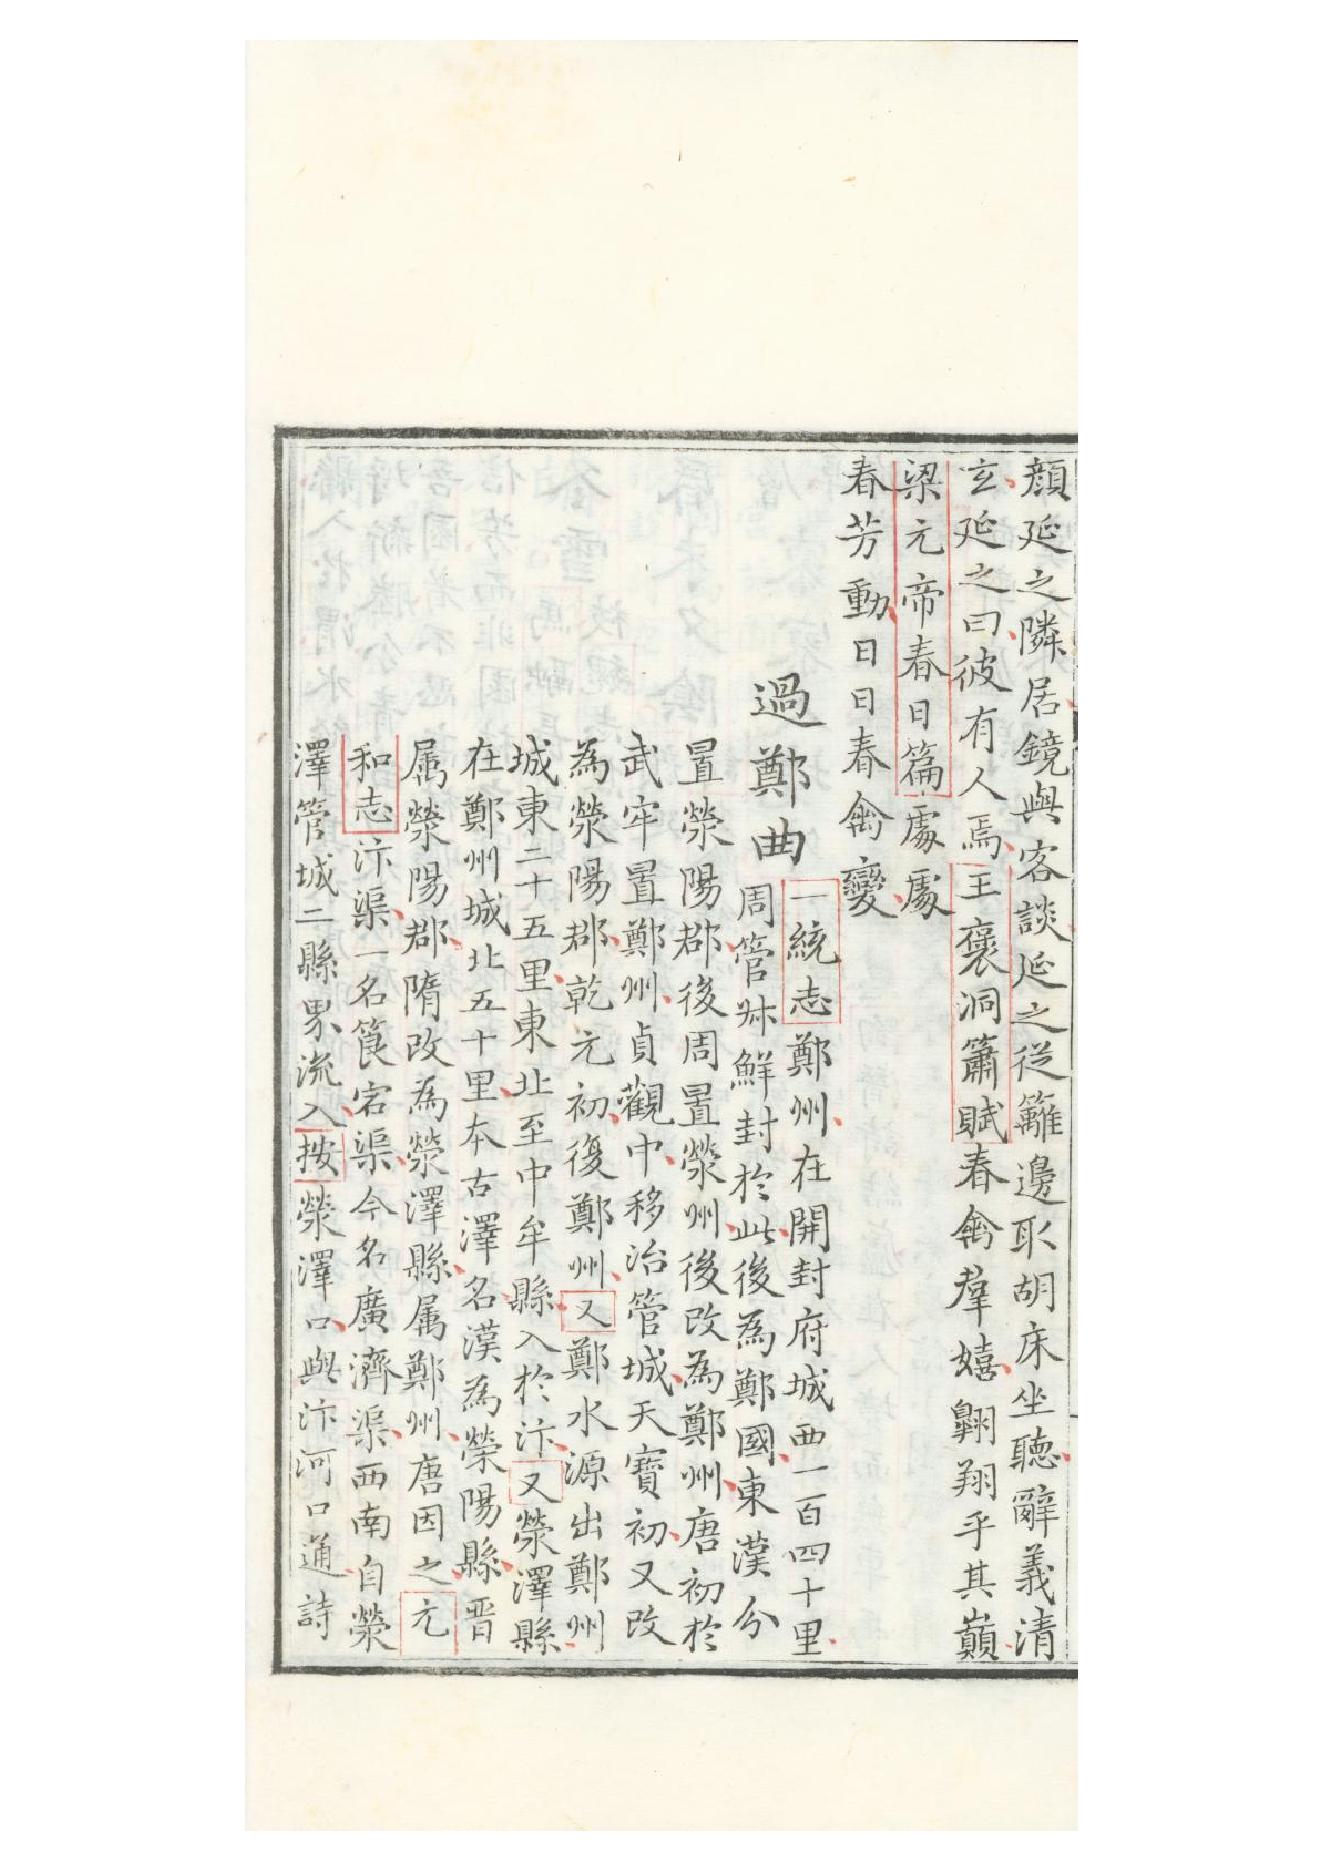 顏延之隣居鏡與客談延之從籬邊取胡床坐聽辭義清
玄延之曰彼有人焉王襃洞簫賦春禽羣嬉翺翔乎其巔
梁元帝春日篇處處
春芳動日日春禽變
過鄭曲
一統志鄭州在開封府城西一百四十里
周管叔鮮封於此後為鄭國東漢分
置滎陽郡後周置滎州後改為鄭州唐初於
武牢置鄭州貞觀中移治管城天寶初又改
為滎陽郡乾元初復鄭州又鄭水源出鄭州
城東二十五里東北至中牟縣入於汴又滎澤縣
在鄭州城北五十里本古澤名漢為滎陽縣晋
属滎陽郡隋改為滎澤縣属鄭州唐因之元
和志汴渠一名莨宕渠今名廣濟渠西南自滎
澤管城二縣界流入按滎澤口與汴河口通詩